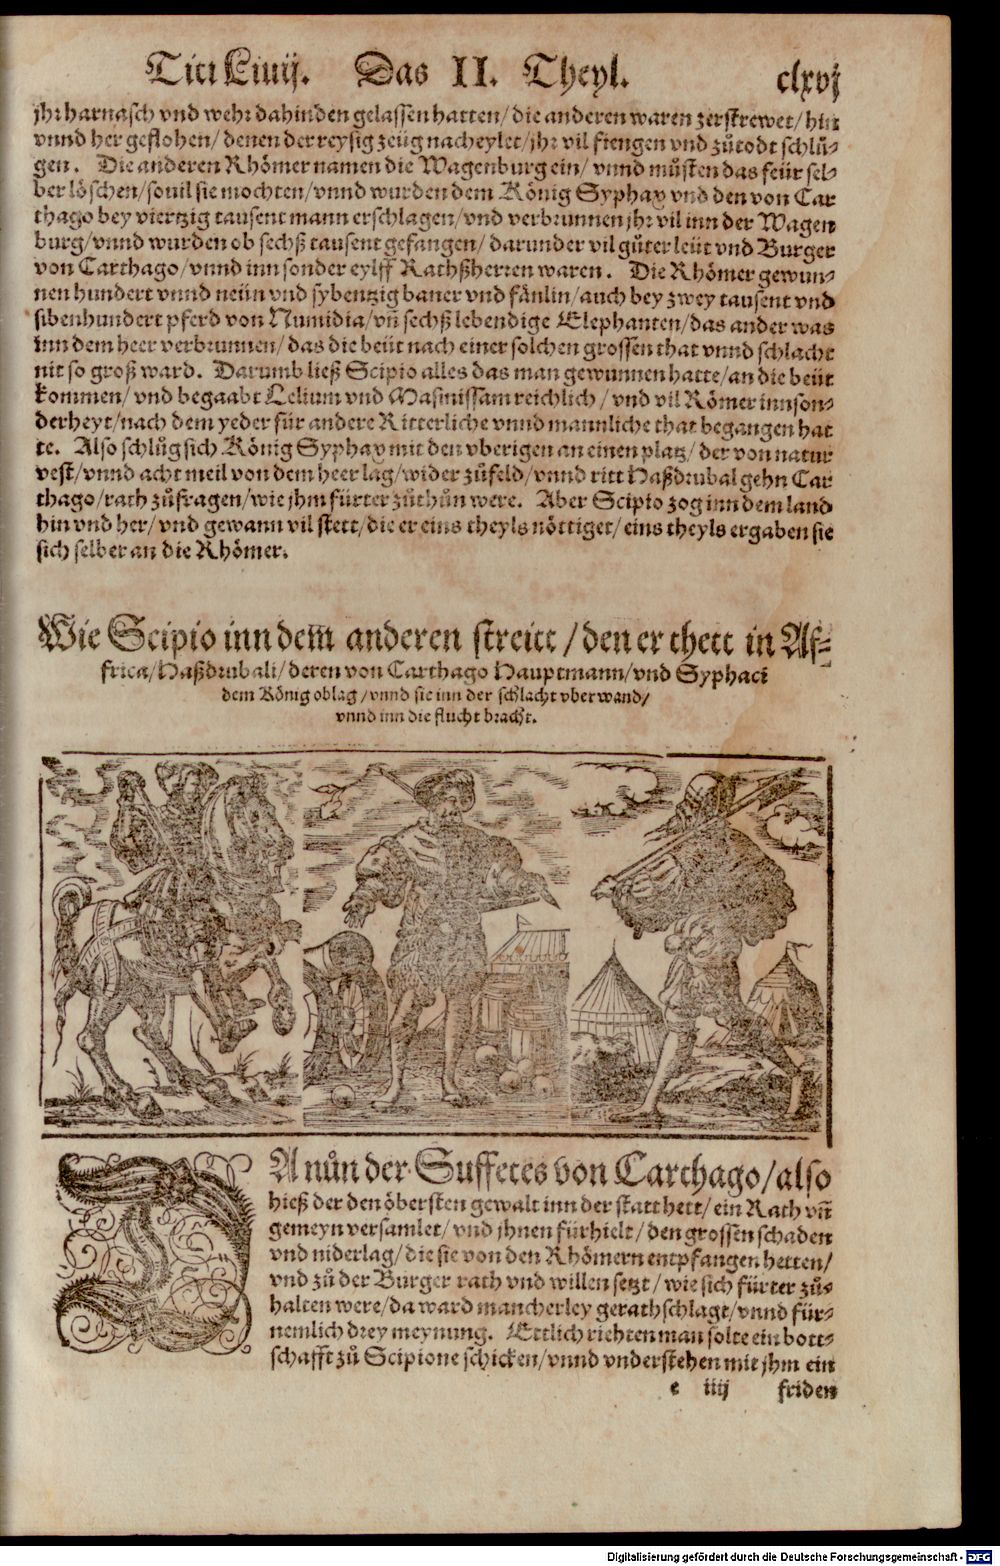 Titi Liuij. Das II. Theyl. clxvj
jhr harnasch vnd wehr dahinden gelassen hatten/ die anderen waren zerstrewet/ hin
vnnd her geflohen/ denen der reysig zeüg nacheylet/ jhr vil fiengen vnd zů todt schlů-
gen. Die anderen Rhömer namen die Wagenburg ein/ vnnd můsten das feür sel-
ber löschen/ souil sie mochten/ vnnd wurden dem König Syphax vnd den von Car
thago bey viertzig tausent mann erschlagen/ vnd verbrunnen jhr vil inn der Wagen
burg/ vnnd wurden ob sechß tausent gefangen/ darunder vil gůter leüt vnd Burger
von Carthago/ vnnd innsonder eylff Rathßherren waren. Die Rhömer gewun-
nen hundert vnnd neün vnd sybentzig baner vnd fänlin/ auch bey zwey tausent vnd
sibenhundert pferd von Numidia/ vñ sechß lebendige Elephanten/ das ander was
inn dem heer verbrunnen/ das die beüt nach einer solchen grossen that vnnd schlacht
nit so groß ward. Darumb ließ Scipio alles das man gewunnen hatte/ an die beüt
kommen/ vnd begaabt Lelium vnd Masinissam reichlich/ vnd vil Römer innson-
derheyt/ nach dem yeder für andere Ritterliche vnnd mannliche that begangen hat
te. Also schlůg sich König Syphax mit den vberigen an einen platz/ der von natur
vest/ vnnd acht meil von dem heer lag/ wider zů feld/ vnnd ritt Haßdrubal gehn Car
thago/ rath zů fragen/ wie jhm fürter zůthůn were. Aber Scipio zog inn dem land
hin vnd her/ vnd gewann vil stett/ die er eins theyls nöttiget/ eins theyls ergaben sie
sich selber an die Rhömer.
Wie Scipio inn dem anderen streitt/ den er thett in Af-
frica/ Haßdrubali/ deren von Carthago Hauptmann/ vnd Syphaci
dem König oblag/ vnnd sie inn der schlacht vberwand/
vnnd inn die flucht bracht.
DA nůn der Suffetes von Carthago/ also
hieß der den öbersten gewalt inn der statt hett/ ein Rath vñ
gemeyn versamlet/ vnd jhnen fürhielt/ den grossen schaden
vnd niderlag/ die sie von den Rhömern entpfangen hetten/
vnd zů der Burger rath vnd willen setzt/ wie sich fürter zů-
halten were/ da ward mancherley gerathschlagt/ vnnd für-
nemlich drey meynung. Ettlich riehten man solte ein bott-
schafft zů Scipione schicken/ vnnd vnderstehen mit jhm ein
e iiij friden
Digitalisierung gefördert durch die Deutsche Forschungsgemeinschaft - DFG